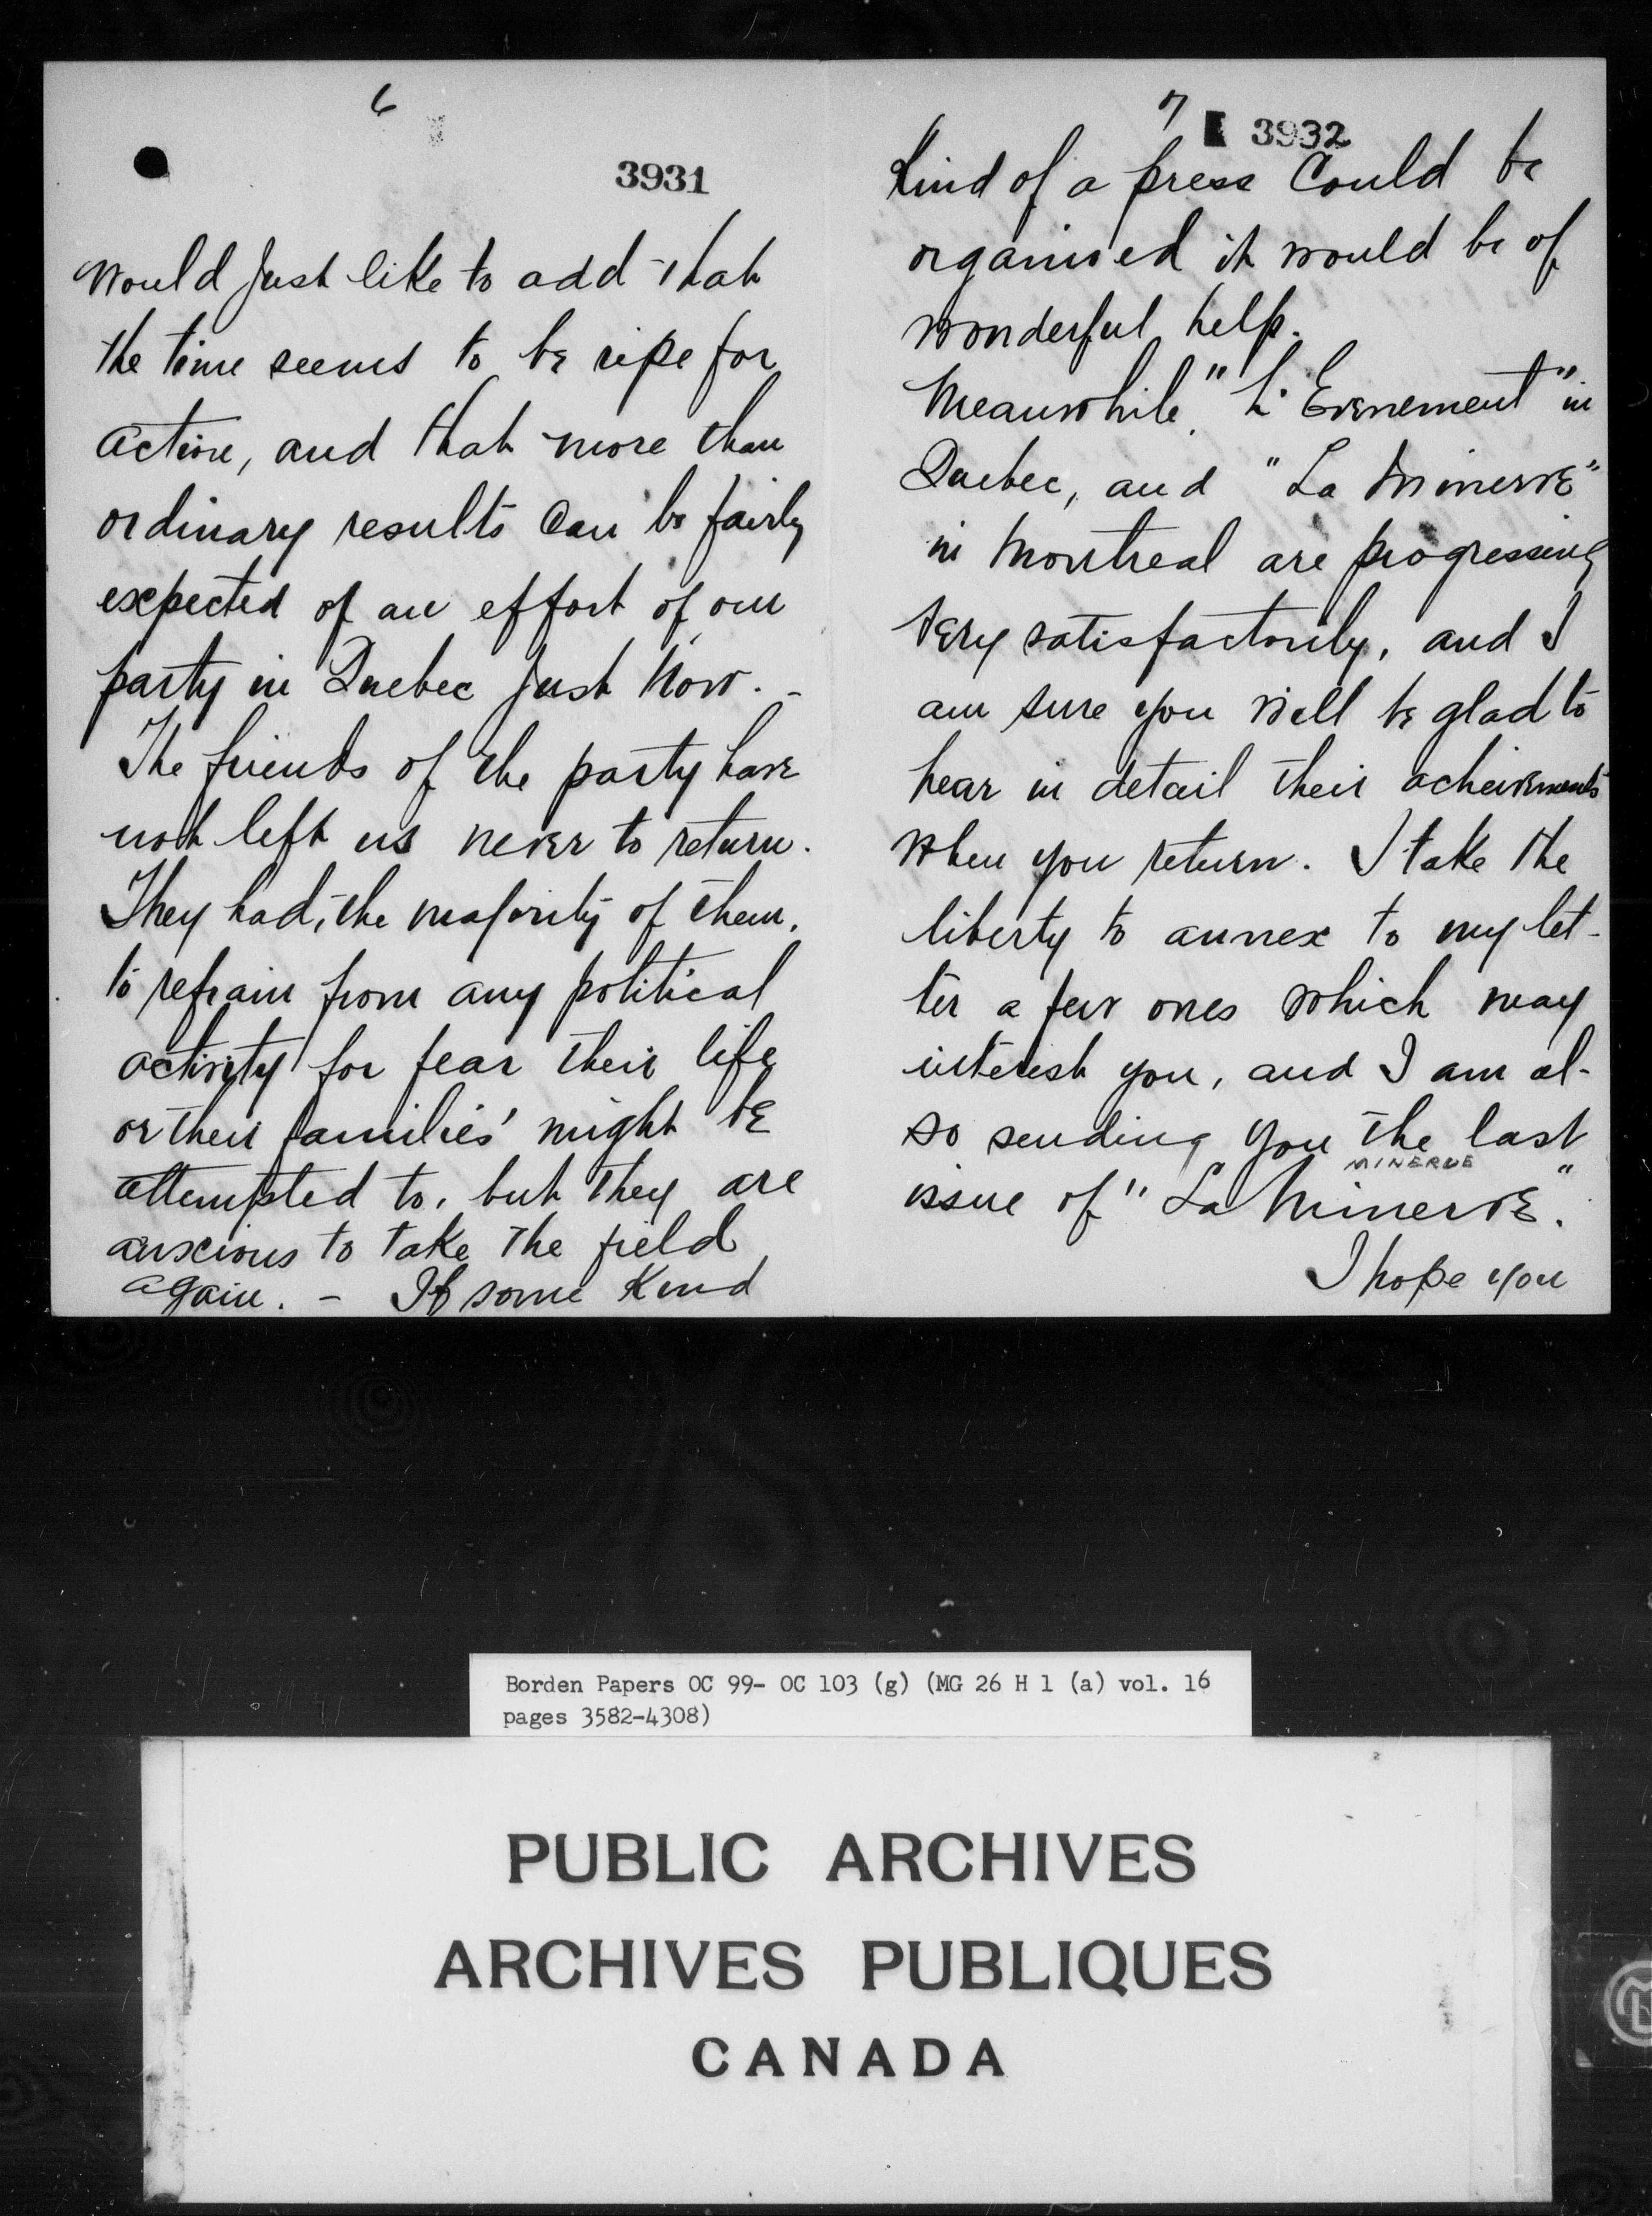 6
3931
would just like to add that
the time seems to be ripe for
action, and that more than
ordinary results can be fairly
expected of an effort of our
party in Quebec just now. -
The friends of the party have
not left us never to return.
They had, the majority of them,
to refrain from any political
activity for fear their life
or their families' might be
attempted to, but they are
anxious to take the field
again. - If some Kind
7
3932
Kind of a press Could be
organised it would be of
wonderful help.
Meanwhile, "L'Evenement" in
Quebec, and "La Minerve"
in Montreal are progressing
very satisfactorily, and I
am sure you will be glad to
hear in detail their acheivements
when you return. I take the
liberty to annex to my let-
ter a few ones which may
interest you, and I am al-
so sending you the last
MINERVE
issue of "La Minerve".
I hope you
Borden Papers OC 99- OC 103 (g) (MG 26 H 1 (a) vol. 16
pages 3582-4308)
PUBLIC ARCHIVES
ARCHIVES PUBLIQUES
CANADA